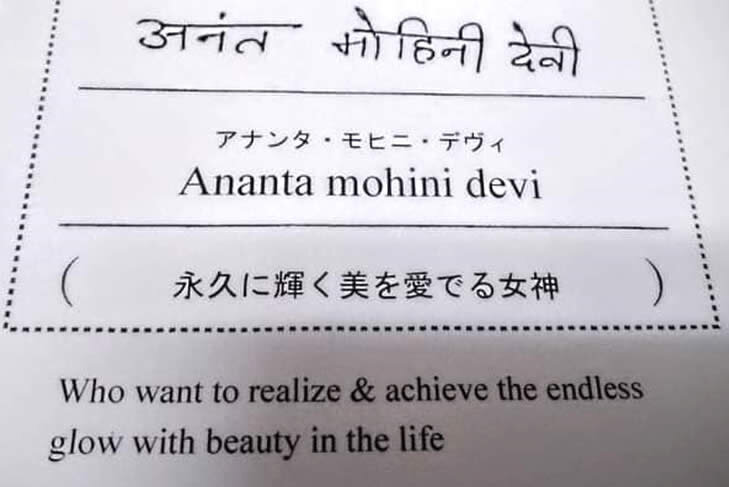 अनंत मोहिनी देवी
アナンタ・モヒニ・デヴィ
Ananta mohini devi
( 永久に輝く美を愛でる女神 )
Who want to realize & achieve the endless
glow with beauty in the life